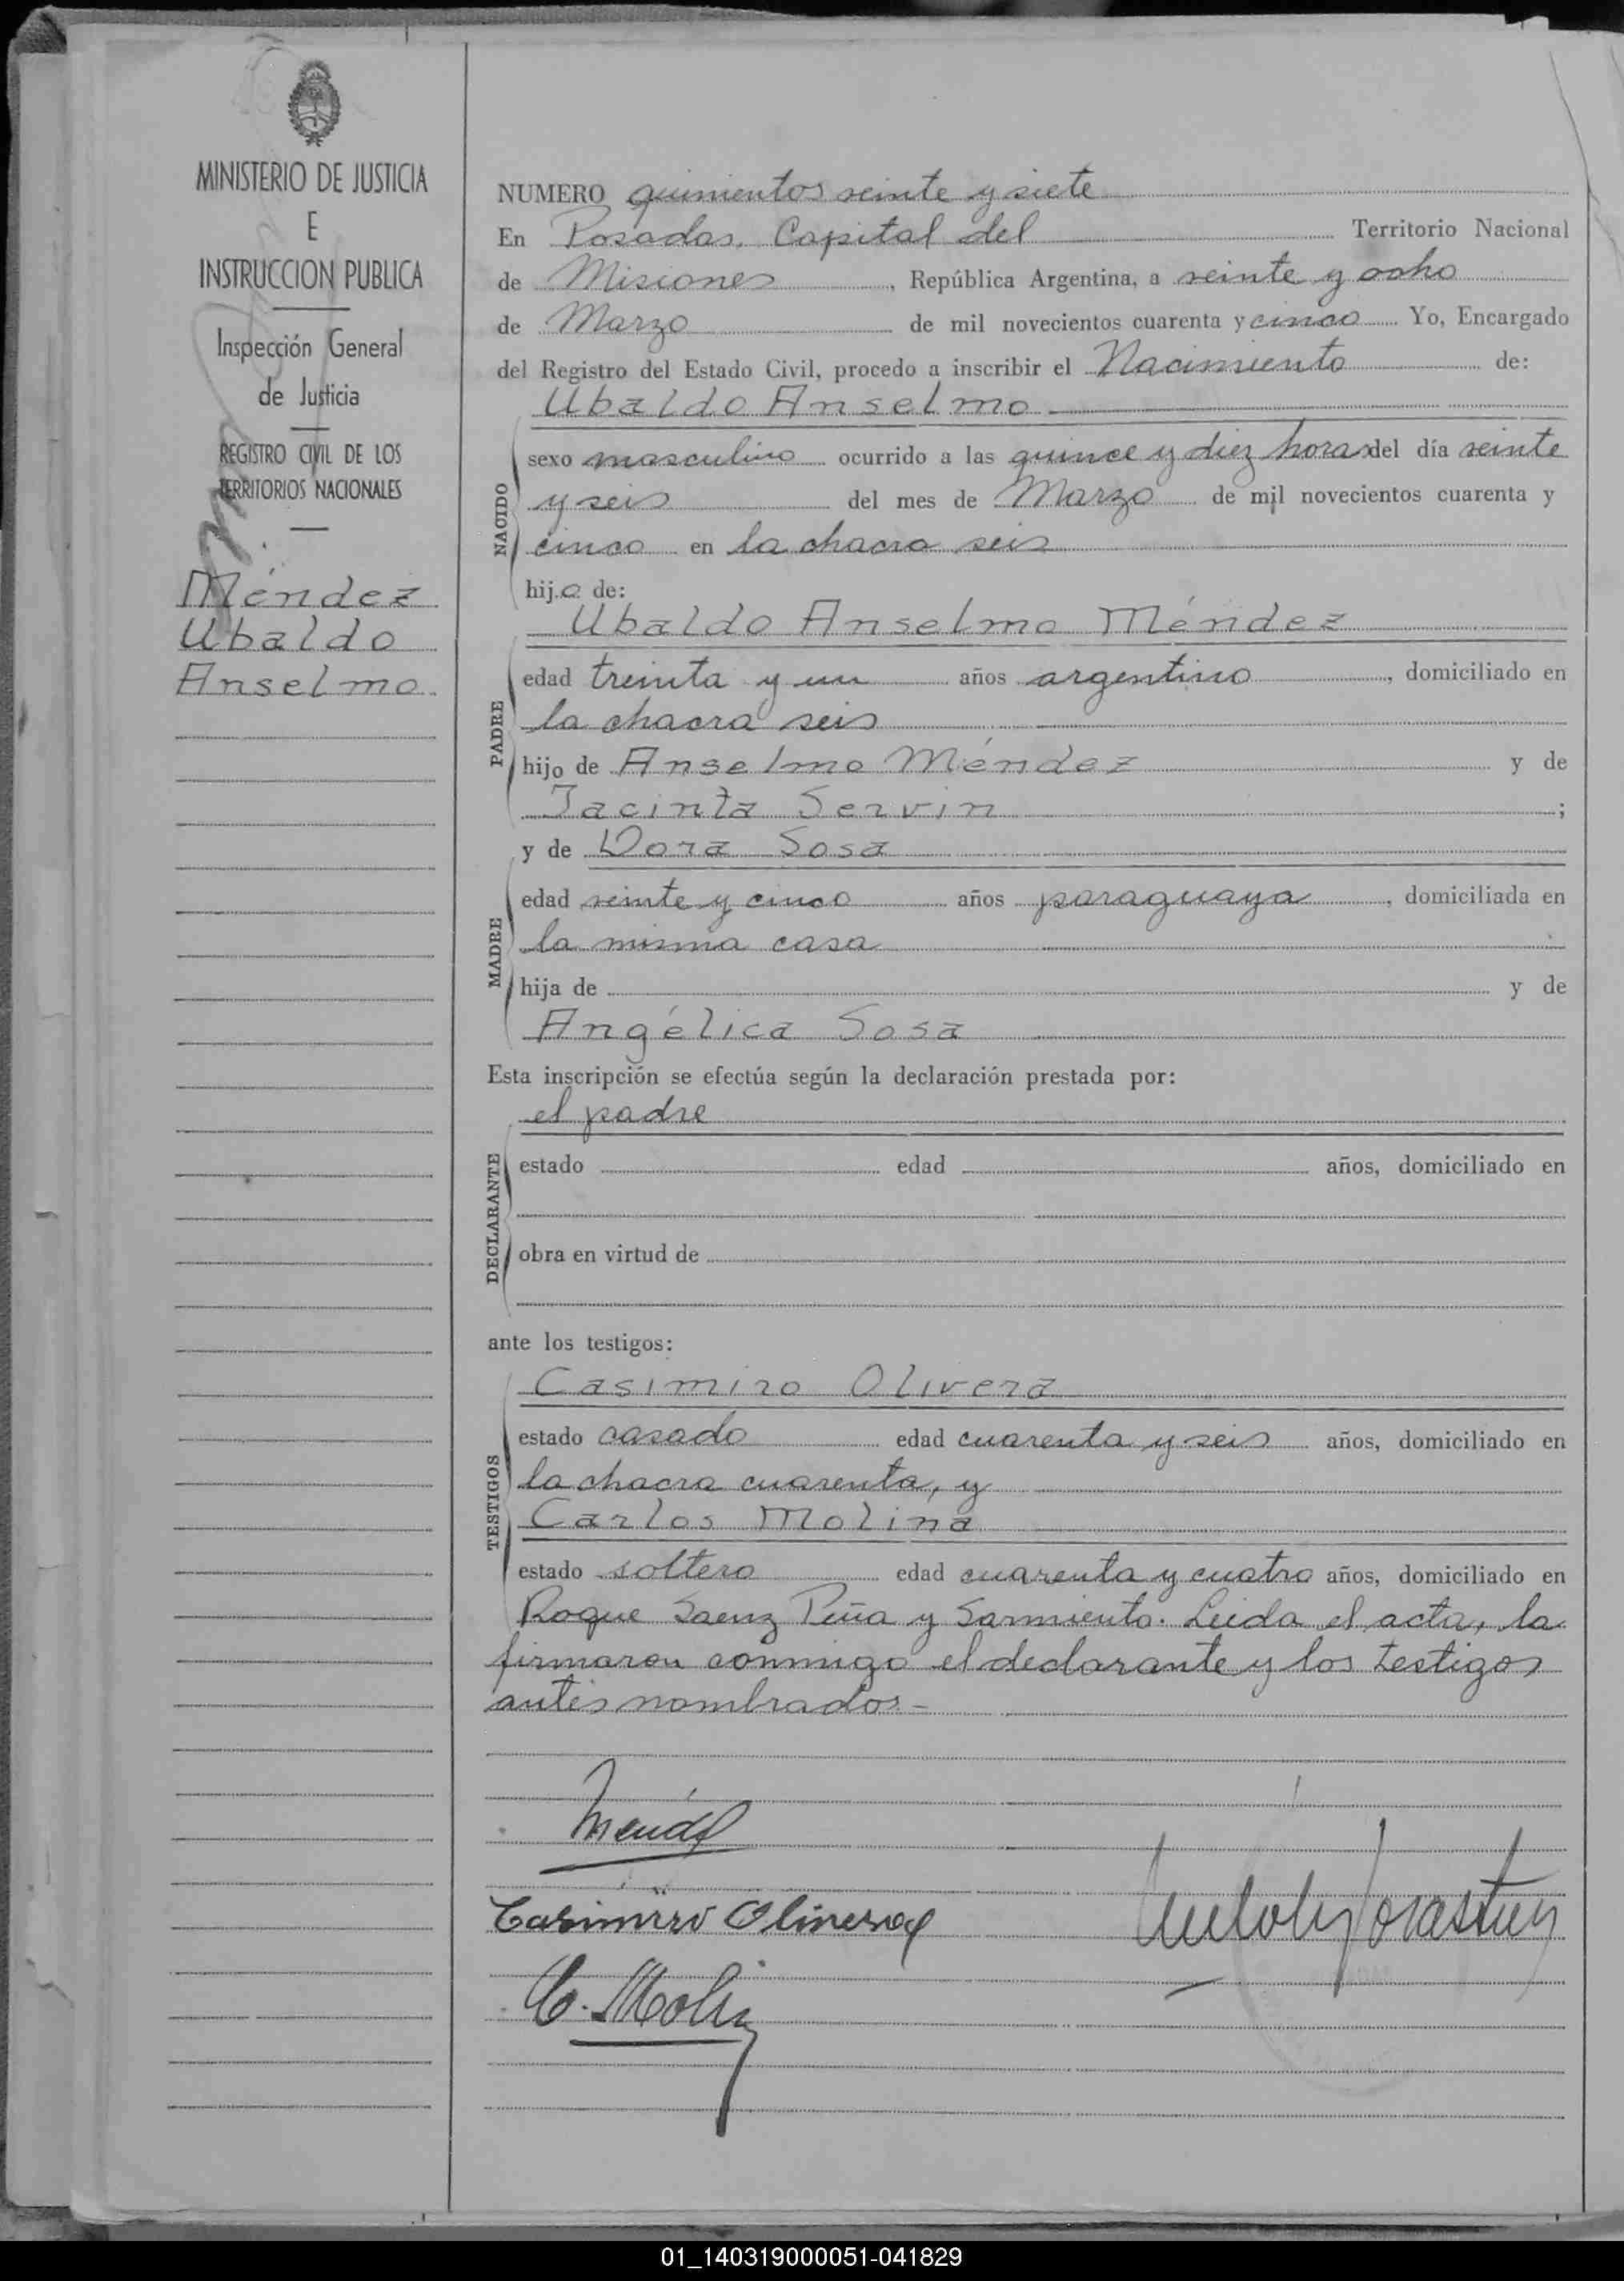 MINISTERIO DE JUSTICIA
E
INSTRUCCION PUBLICA
Inspección General
de Justicia
REGISTRO CIVIL DE LOS
TERRITORIOS NACIONALES
Méndez
Ubaldo
Anselmo
NUMERO quinientos veinte y siete
En Posadas, Capital del Territorio Nacional
de Misiones, República Argentina, a veinte y ocho
de Marzo de mil novecientos cuarenta y cinco Yo, Encargado
del Registro del Estado Civil, procedo a inscribir el Nacimiento de:
Ubaldo Anselmo
NACIDO
sexo masculino ocurrido a las quince y diez horas del día veinte
y seis del mes de Marzo de mil novecientos cuarenta y
cinco en la chacra seis
hijo de:
Ubaldo Anselmo Méndez
PADRE
edad treinta y un años argentino, domiciliado en
la chacra seis
hijo de Anselmo Méndez y de
Jacinta Servin ;
y de Dora Sosa
MADRE
edad veinte y cinco años paraguaya, domiciliada en
la misma casa
hija de y de
Angélica Sosa
Esta inscripción se efectúa según la declaración prestada por:
el padre
DECLARANTE
estado edad años, domiciliado en
obra en virtud de
ante los testigos:
Casimiro Olivera
TESTIGOS
estado casado edad cuarenta y seis años, domiciliado en
la chacra cuarenta, y
Carlos Molina
estado soltero edad cuarenta y cuatro años, domiciliado en
Roque Saenz Peña y Sarmiento. Leida el acta, la
firmaron conmigo el declarante y los testigos
antes nombrados.-
Casimiro Olivera
C. Molin
01_140319000051-041829